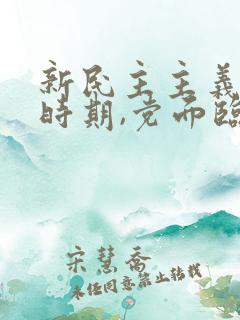 新民主主义
時期,党面臨
宋慧喬
未任同意禁止转载